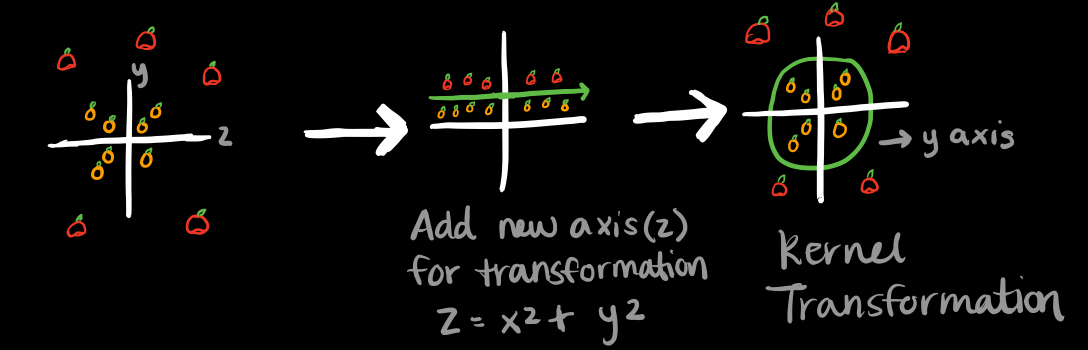 y
z
Add new axis(z)
for transformation
Z = x² + y²
y axis
Kernel
Transformation